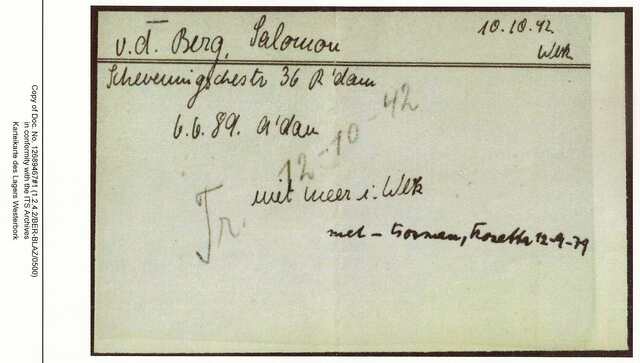 v.d. Berg, Salomon
10.10.42
Wbk
Scheveningschestr 36 R'dam
6.6.89. A'dam
12-10-42
Tr.
niet meer i. Wbk
met - 12-9-79
Copy of Doc. No. 12689467#1 (1.2.4.2/BER-BLAZ/0500)
in conformity with the ITS Archives
Karteikarte des Lagers Westerbork